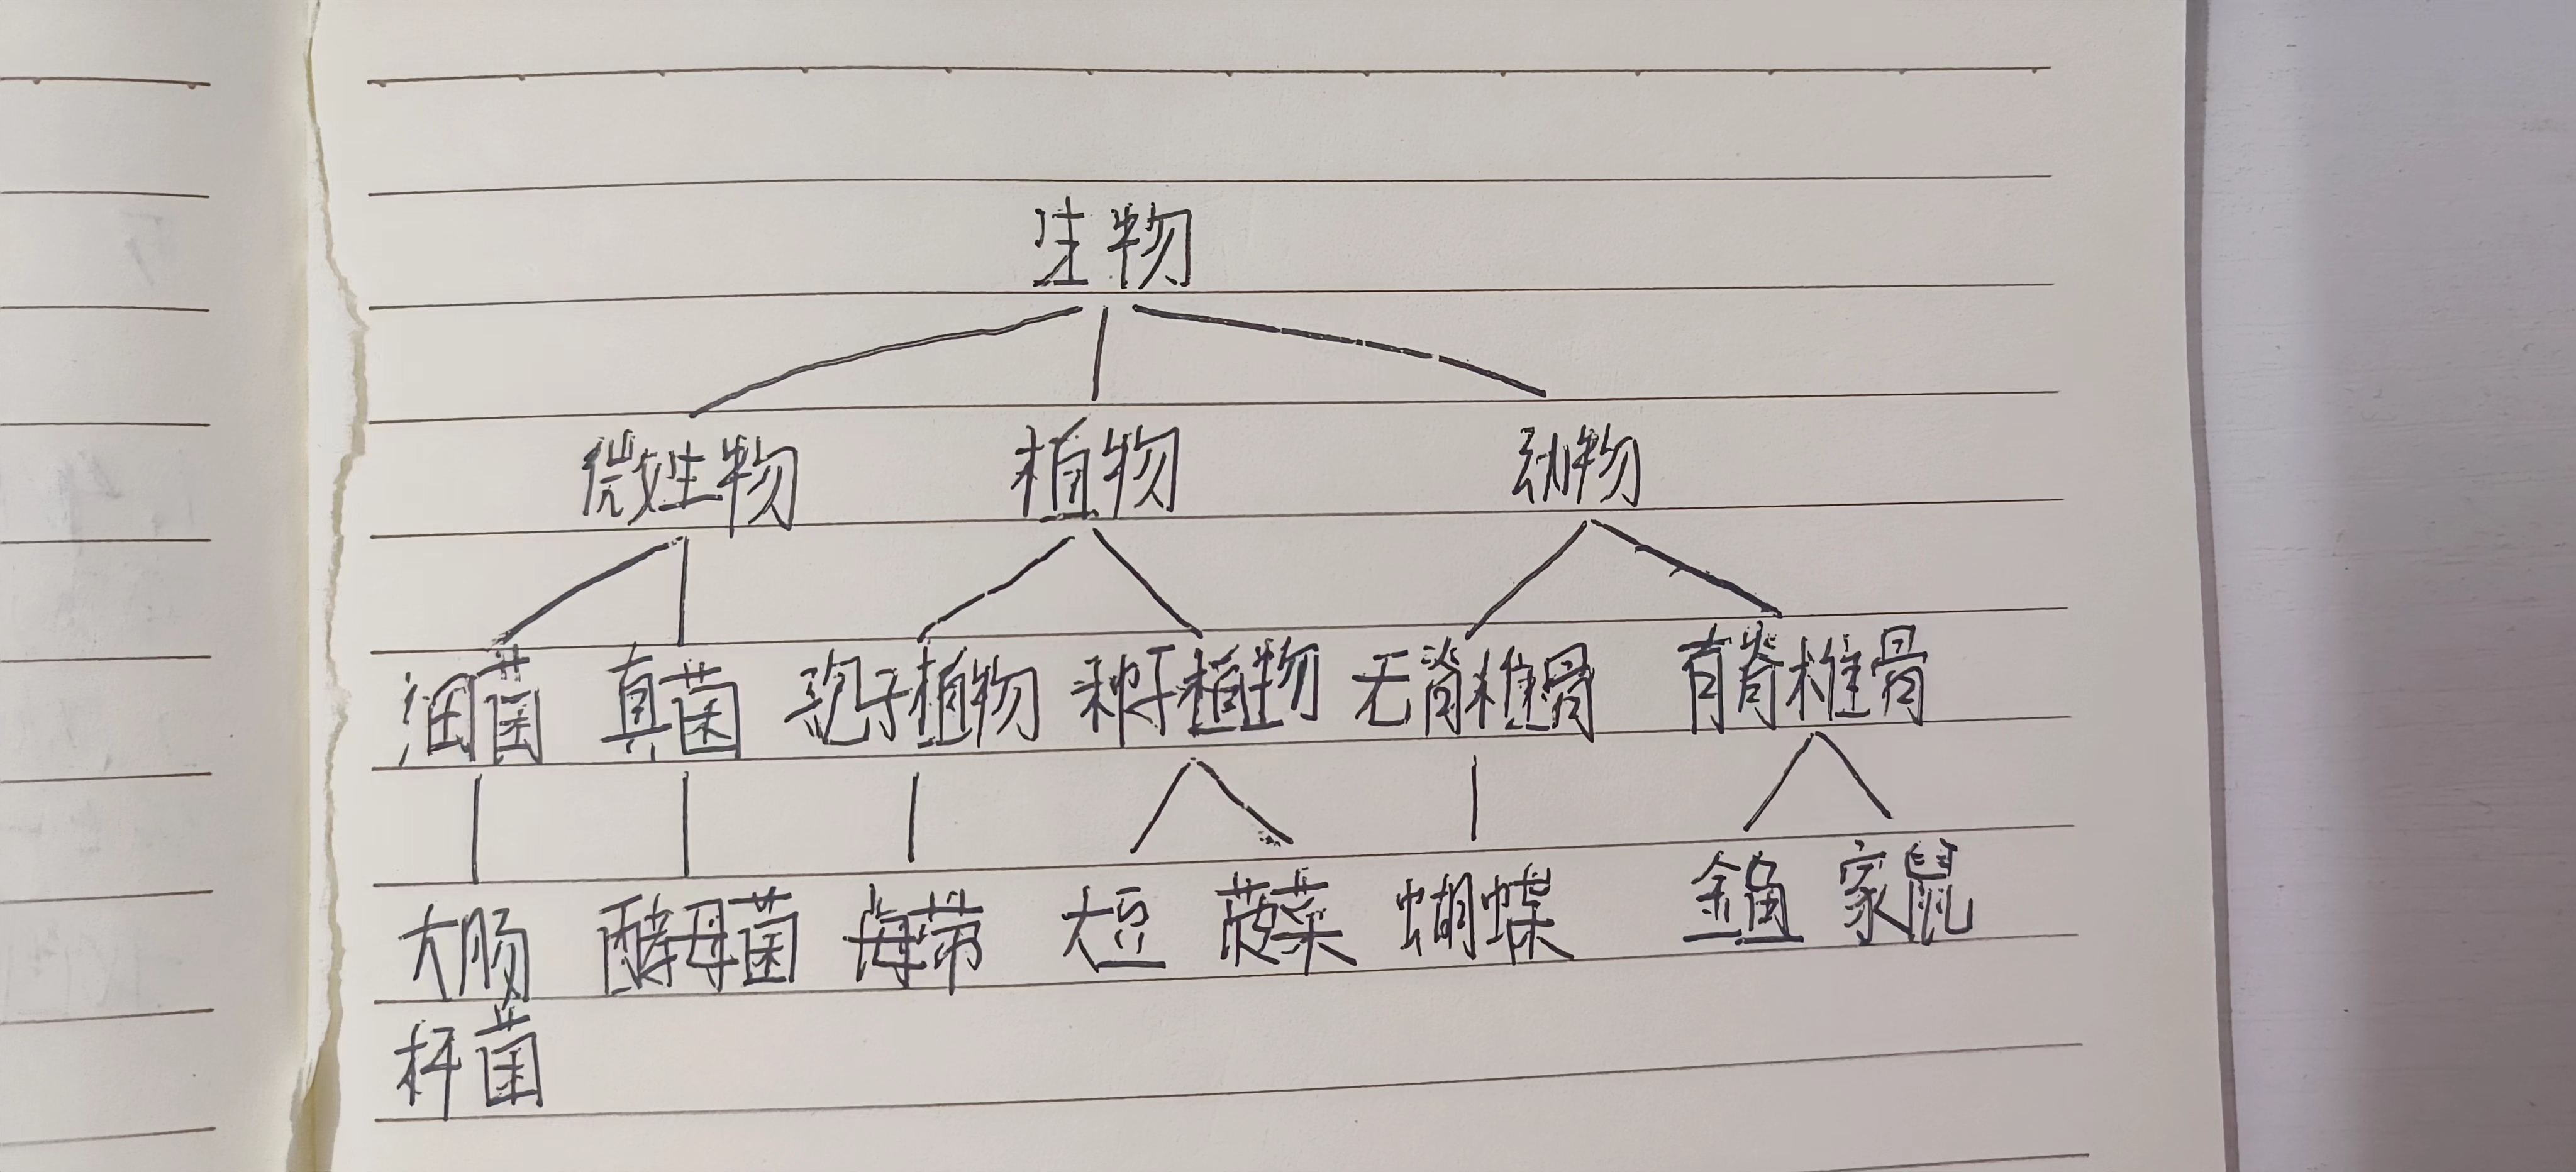 生物
微生物 植物 动物
细菌 真菌 孢子植物 种子植物 无脊椎骨 有脊椎骨
大肠 酵母菌 海带 大豆 菠菜 蝴蝶 金鱼 家鼠
杆菌